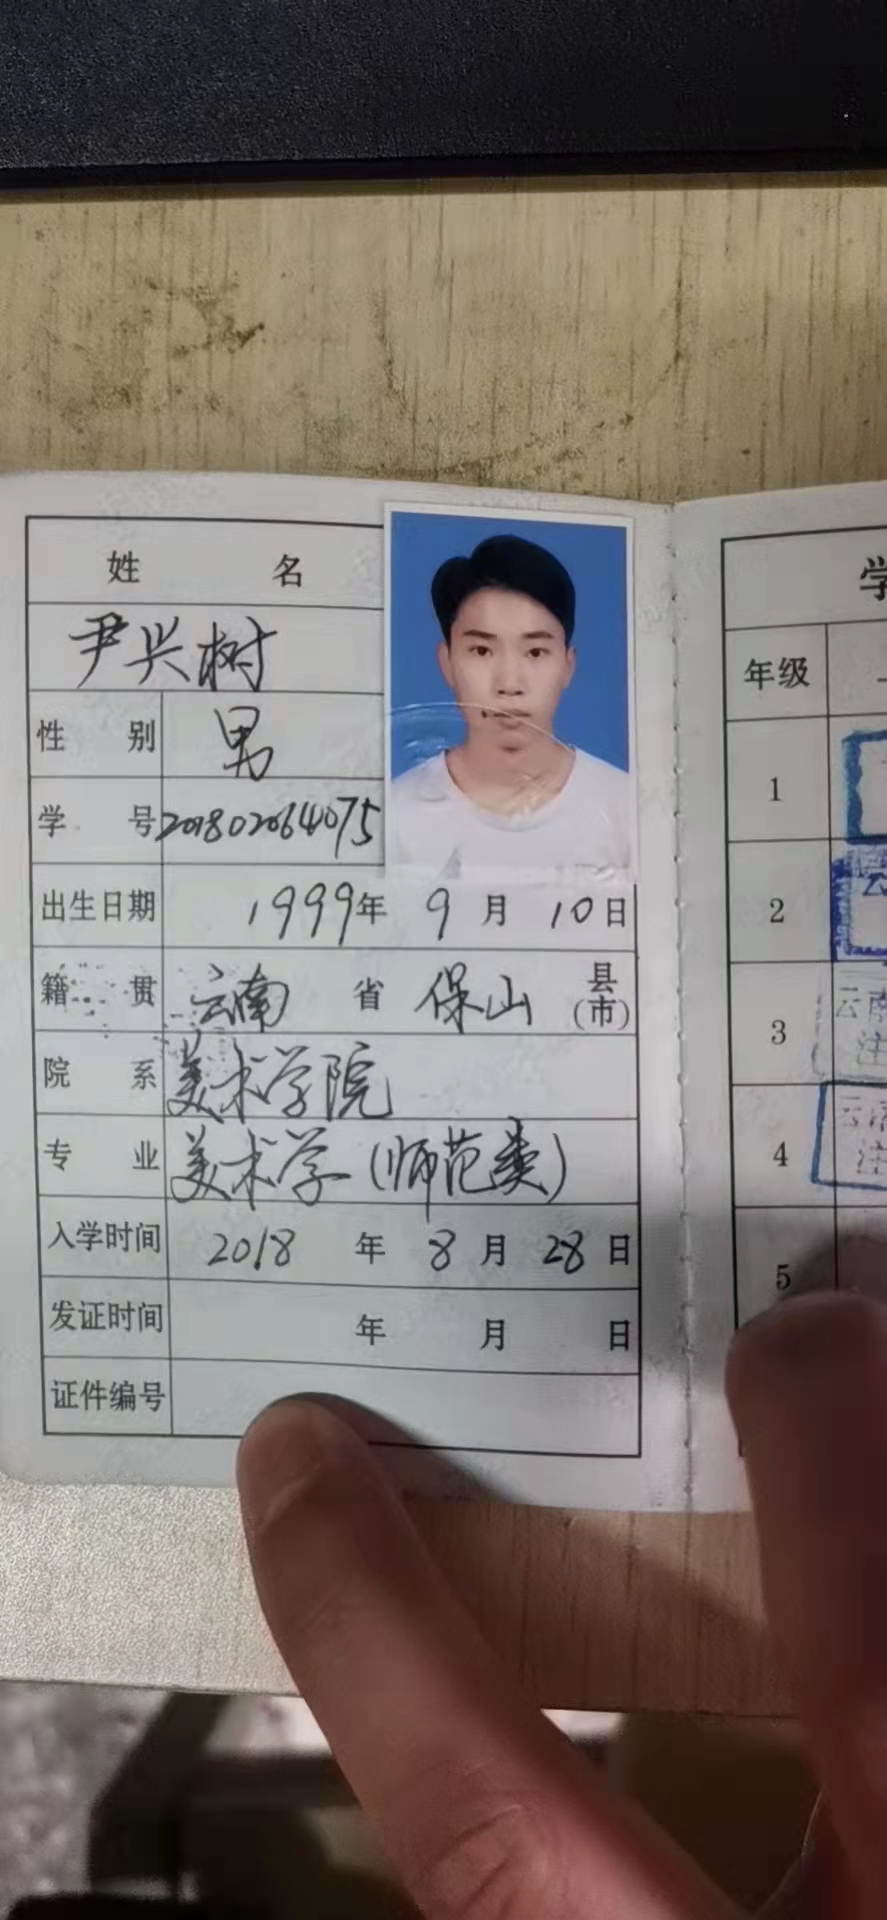 姓 名
尹兴树
性 别 男
学 号 201802064075
出生日期 1999年 9月 10日
籍 贯 云南 省 保山 县(市)
院 系 美术学院
专 业 美术学(师范类)
入学时间 2018 年 8月 28日
发证时间 年 月 日
证件编号
学
年级
1
2 云
3 云南
注
4 云南
注
5